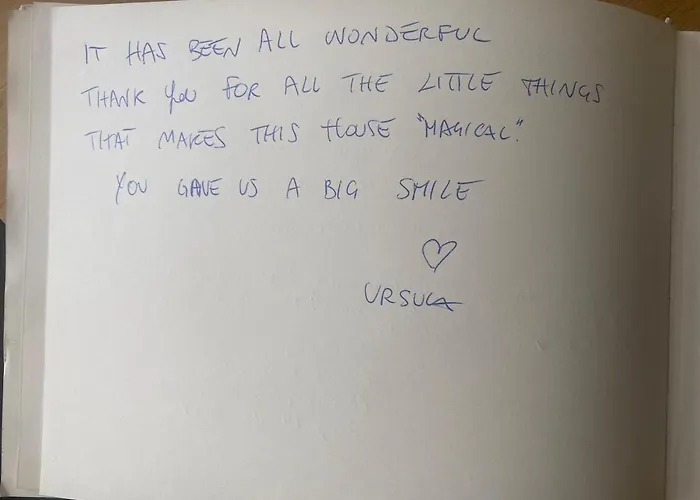 IT HAS BEEN ALL WONDERFUL
THANK YOU FOR ALL THE LITTLE THINGS
THAT MAKES THIS HOUSE "MAGICAL".
YOU GAVE US A BIG SMILE
♡
URSULA